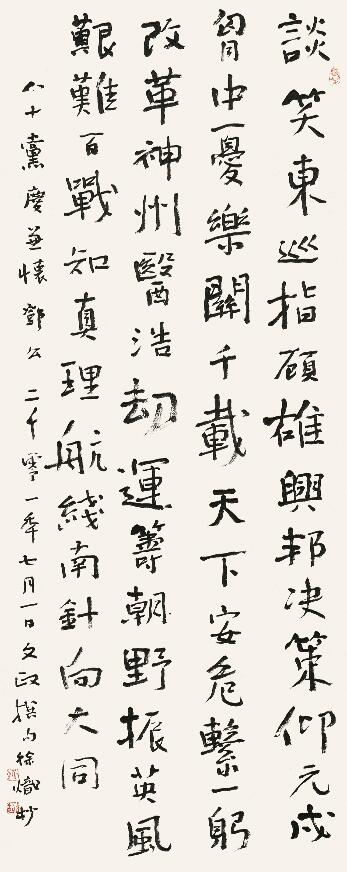 談笑東巡指顧雄興邦决策仰元戎
胷中憂樂關千載天下安危繫一躬
改革神州醫浩劫運籌朝野振英風
艱難百戰知真理航綫南針向大同
八十黨慶並懷鄧公二千零一年七月一日文政撰句徐熾抄